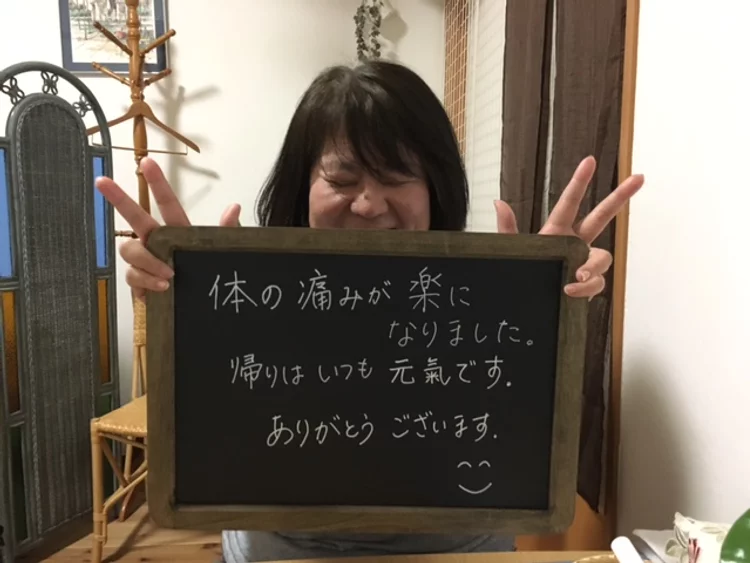 体の痛みが楽に
なりました。
帰りはいつも元氣です.
ありがとうございます.